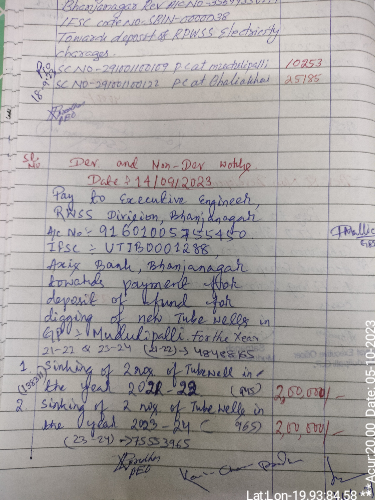 Bhanjanagar Rev A/c No-
IFSC code No-SBIN-0000038
Towards deposit of RPWSS Electricity
charages
SC NO-291001100109 PC at mudulipalli 10253
SC NO-291001100122 PC at Bhaliakhai 25185
18-9-
PEO
Sl. No
Dev and Non-Dev
Date : 14/09/2023
Pay to Executive Engineer,
RWSS Division, Bhanjanagar
A/c No:- 916010057554
IFSC :- UTIB0001288
Axis Bank, Bhanjanagar
towards payment for
deposit of fund for
digging of new Tube wells in
GP :- Mudulipalli For the Year
21-22 & 23-24 (21-22)
1. Sinking of 2 nos of Tube well in
the year 2021-22 2,00,000/-
2 Sinking of 2 nos. of Tube wells in
the year 2023-24 (965) 2,00,000/-
(23-24) → 75553965
PEO
Acur:20.00 Date: 05-10-2023
Lat:Lon-19.93:84.68 **